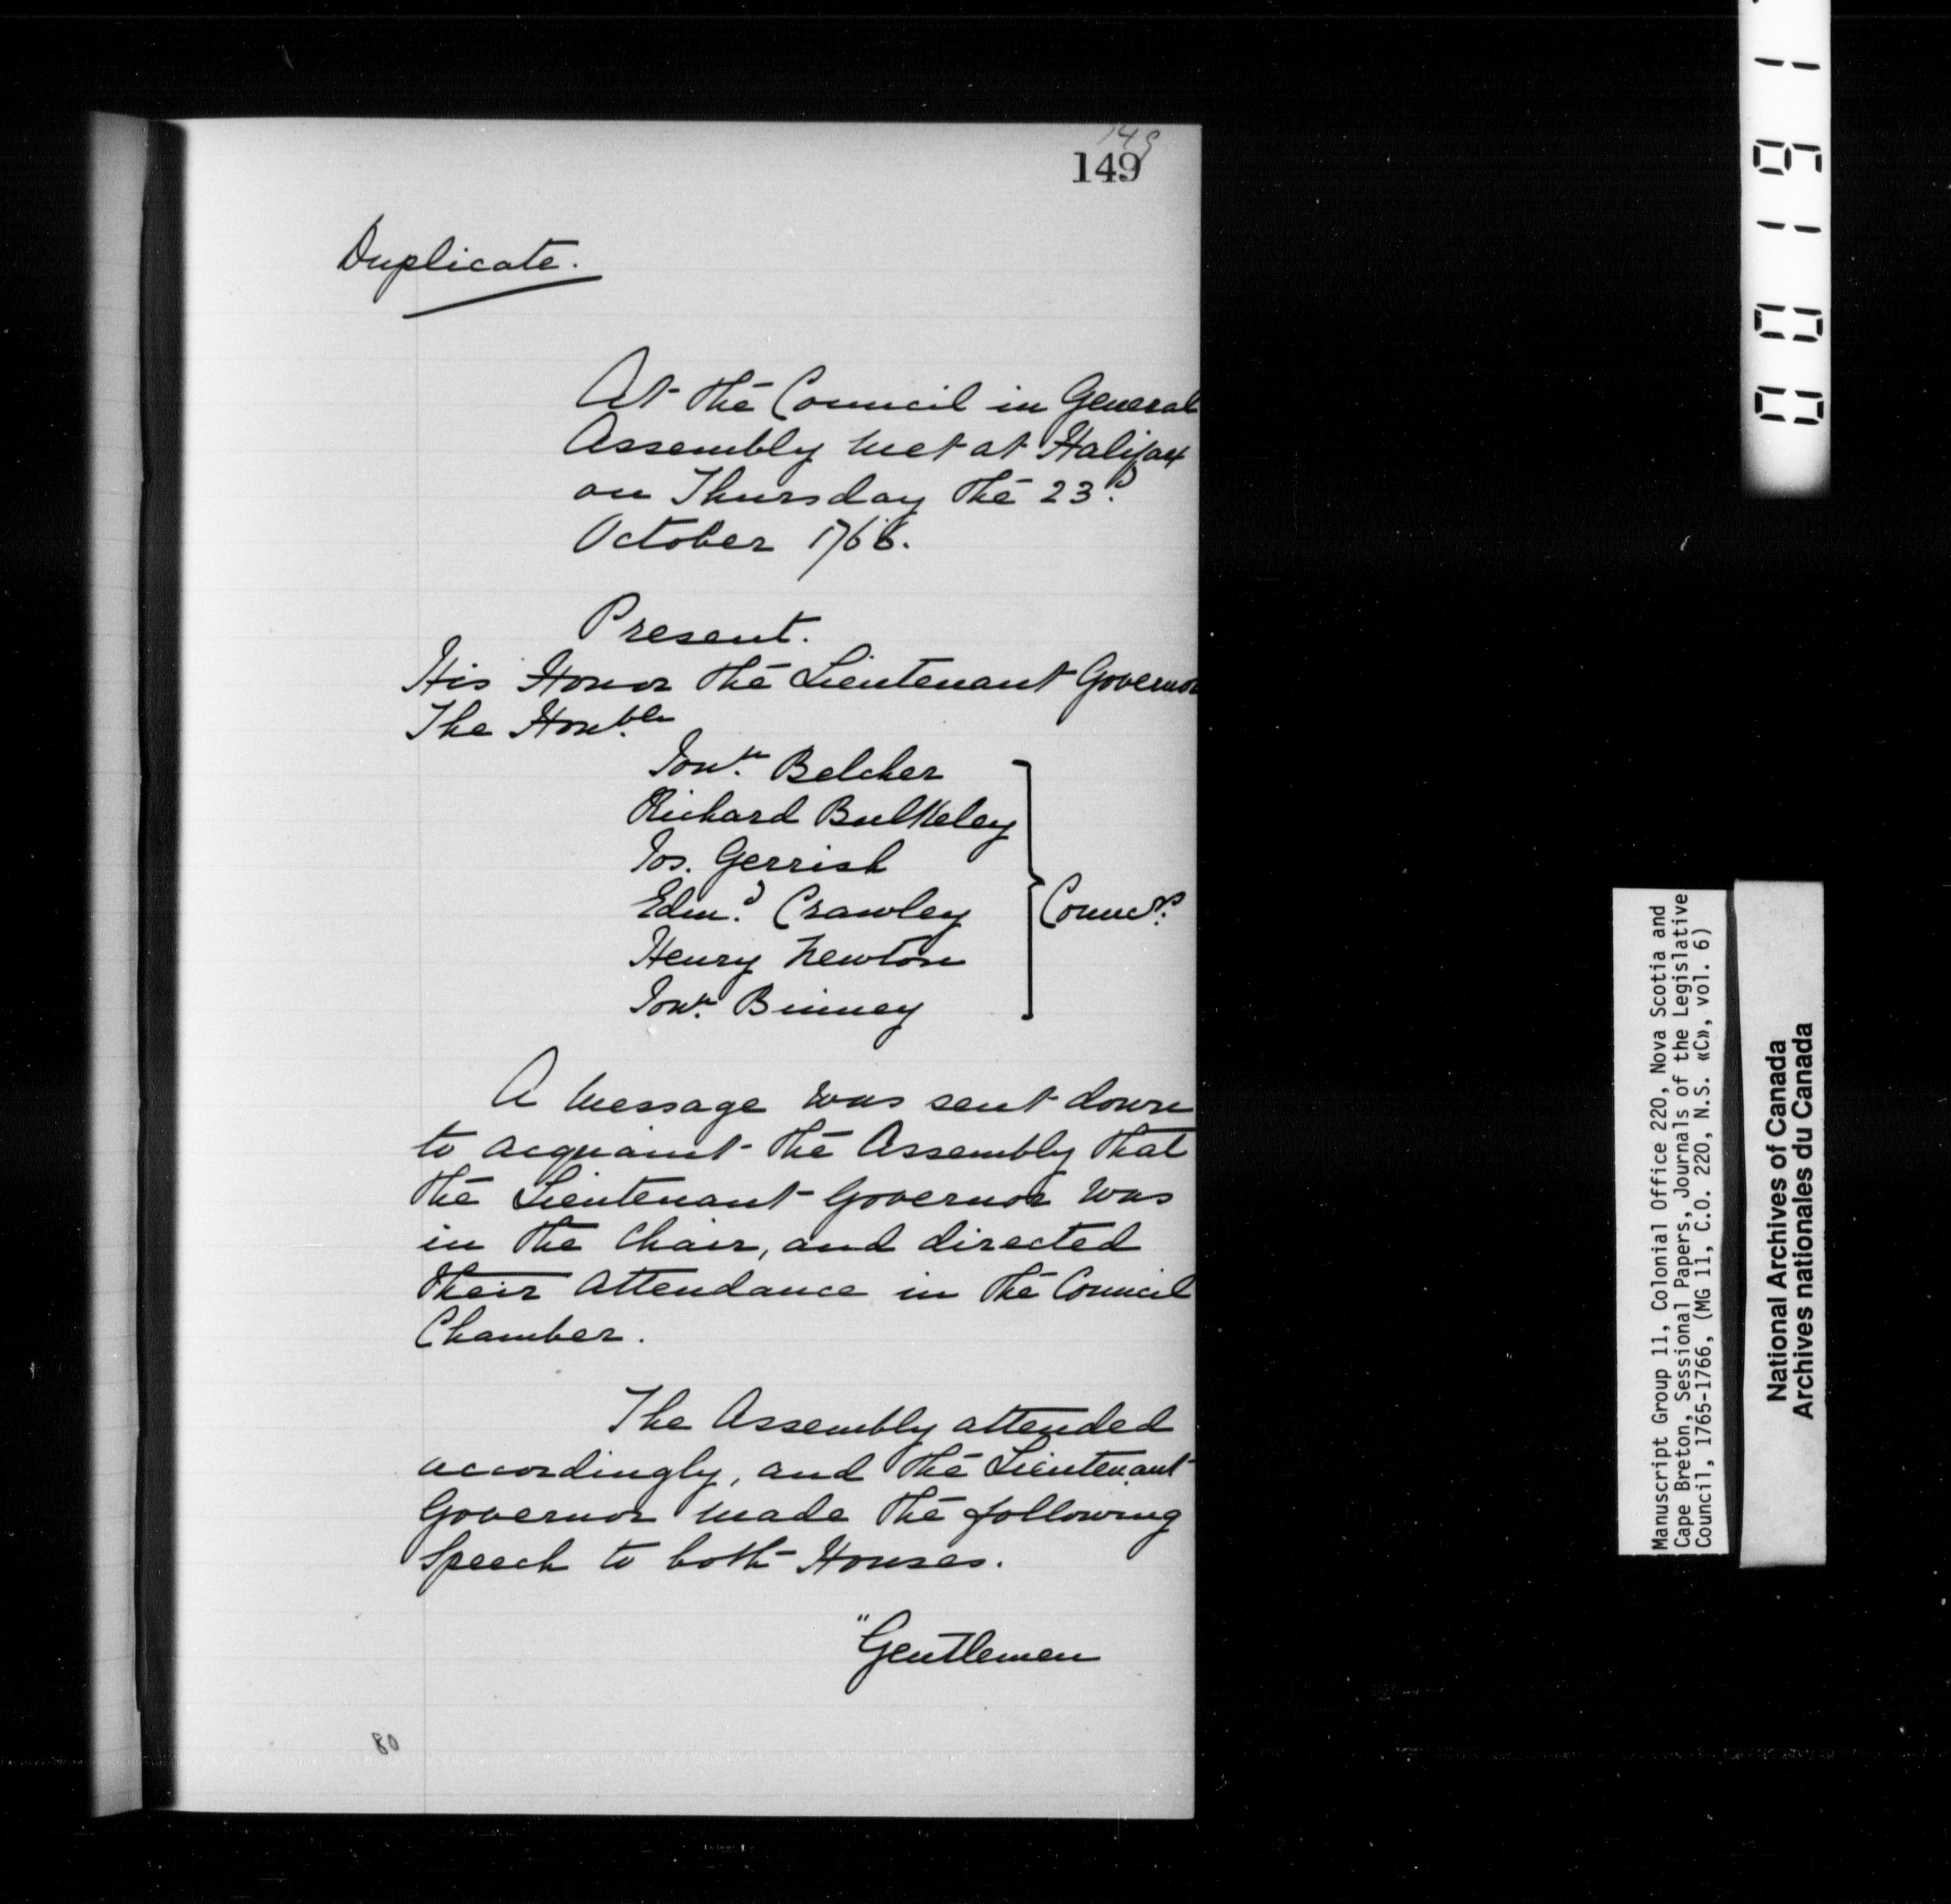 149
149
Duplicate.
At the Council in General
Assembly met at Halifax
on Thursday the 23d.
October 1766.
Present.
His Honor the Lieutenant Governor
The Honble.
Jonn. Belcher
Richard Bulkeley
Jos. Gerrish
Edmd. Crawley
Henry Newton
Jonn. Binney
Councrs.
A Message was sent down
to acquaint the Assembly that
the Lieutenant Governor was
in the Chair, and directed
their attendance in the Council
Chamber.
The Assembly attended
accordingly, and the Lieutenant
Governor made the following
Speech to both Houses.
"Gentlemen
80
00191
Manuscript Group 11, Colonial Office 220, Nova Scotia and
Cape Breton, Sessional Papers, Journals of the Legislative
Council, 1765-1766, (MG 11, C.O. 220, N.S. «C», vol. 6)
National Archives of Canada
Archives nationales du Canada